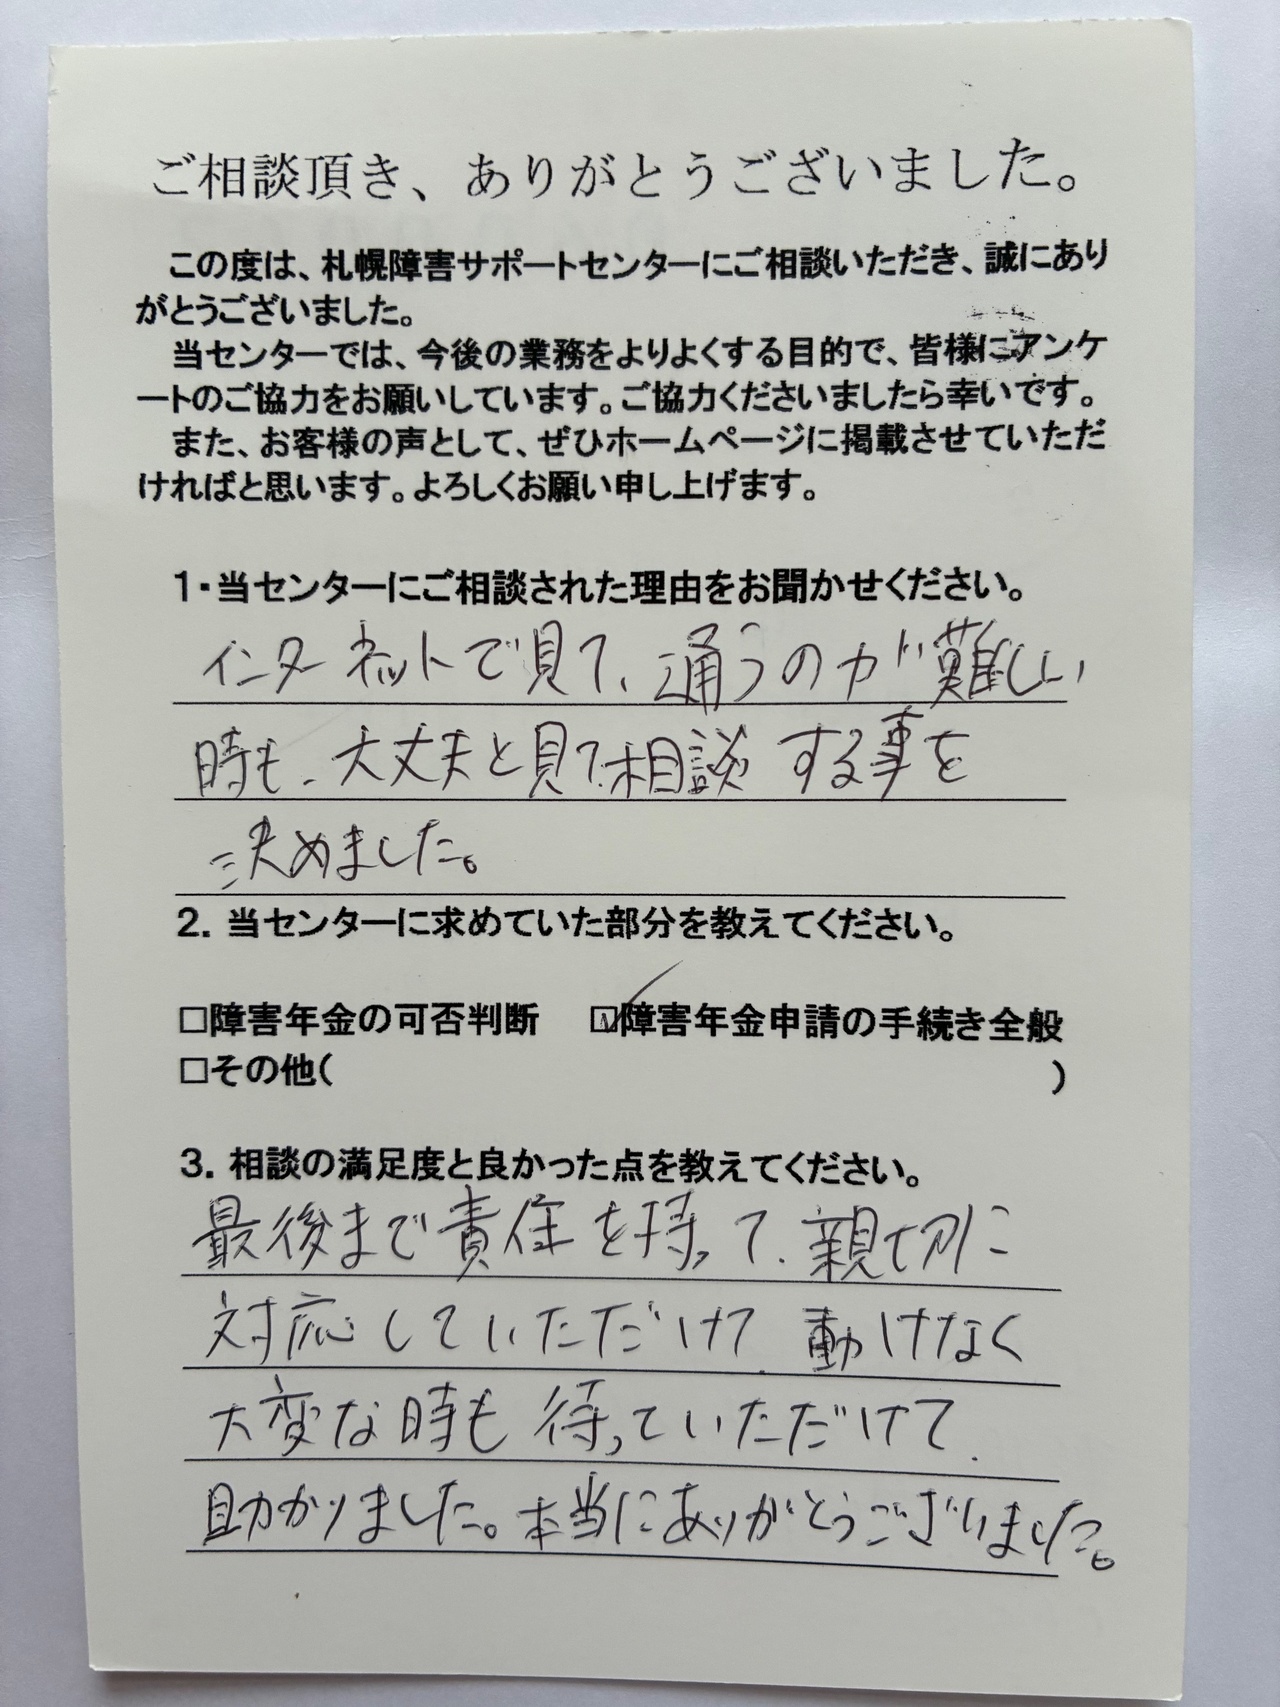 ご相談頂き、ありがとうございました。
この度は、札幌障害サポートセンターにご相談いただき、誠にあり
がとうございました。
当センターでは、今後の業務をよりよくする目的で、皆様にアンケ
ートのご協力をお願いしています。ご協力くださいましたら幸いです。
また、お客様の声として、ぜひホームページに掲載させていただ
ければと思います。よろしくお願い申し上げます。
1・当センターにご相談された理由をお聞かせください。
インターネットで見て、通うのが難しい
時も、大丈夫と見て、相談する事を
決めました。
2．当センターに求めていた部分を教えてください。
□障害年金の可否判断 ☑障害年金申請の手続き全般
□その他( )
3．相談の満足度と良かった点を教えてください。
最後まで責任を持って、親切に
対応していただけて、動けなく
大変な時も待っていただけて、
助かりました。本当にありがとうございました。